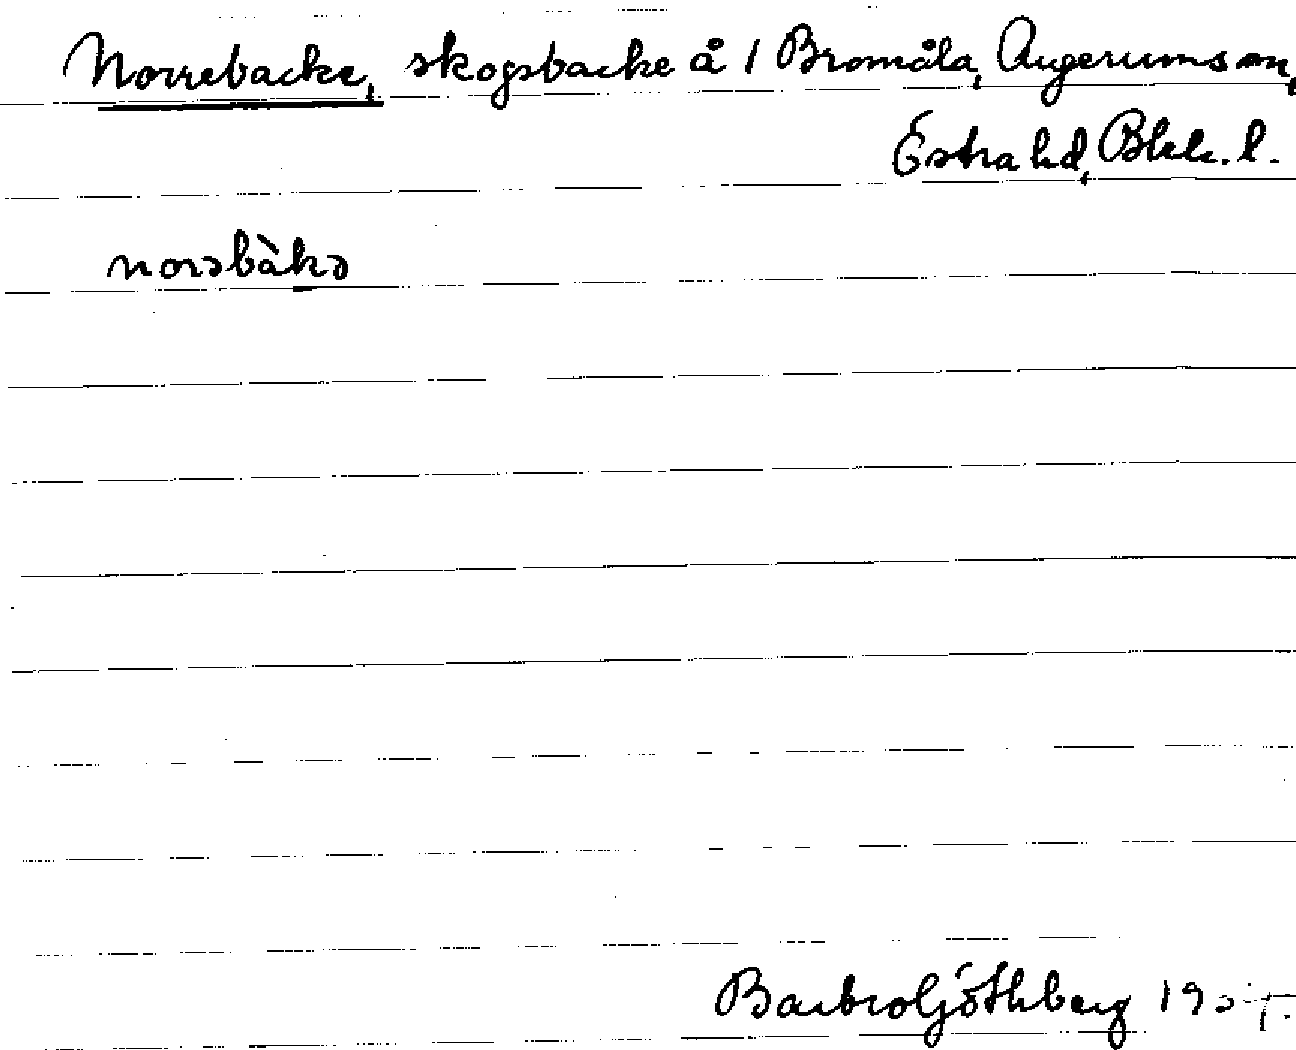 Norrebacke, skogsbacke å 1 Bromåla, Augerums sn,
Östra hd, Blek. l.
norəbàkə
Barbro Göthberg